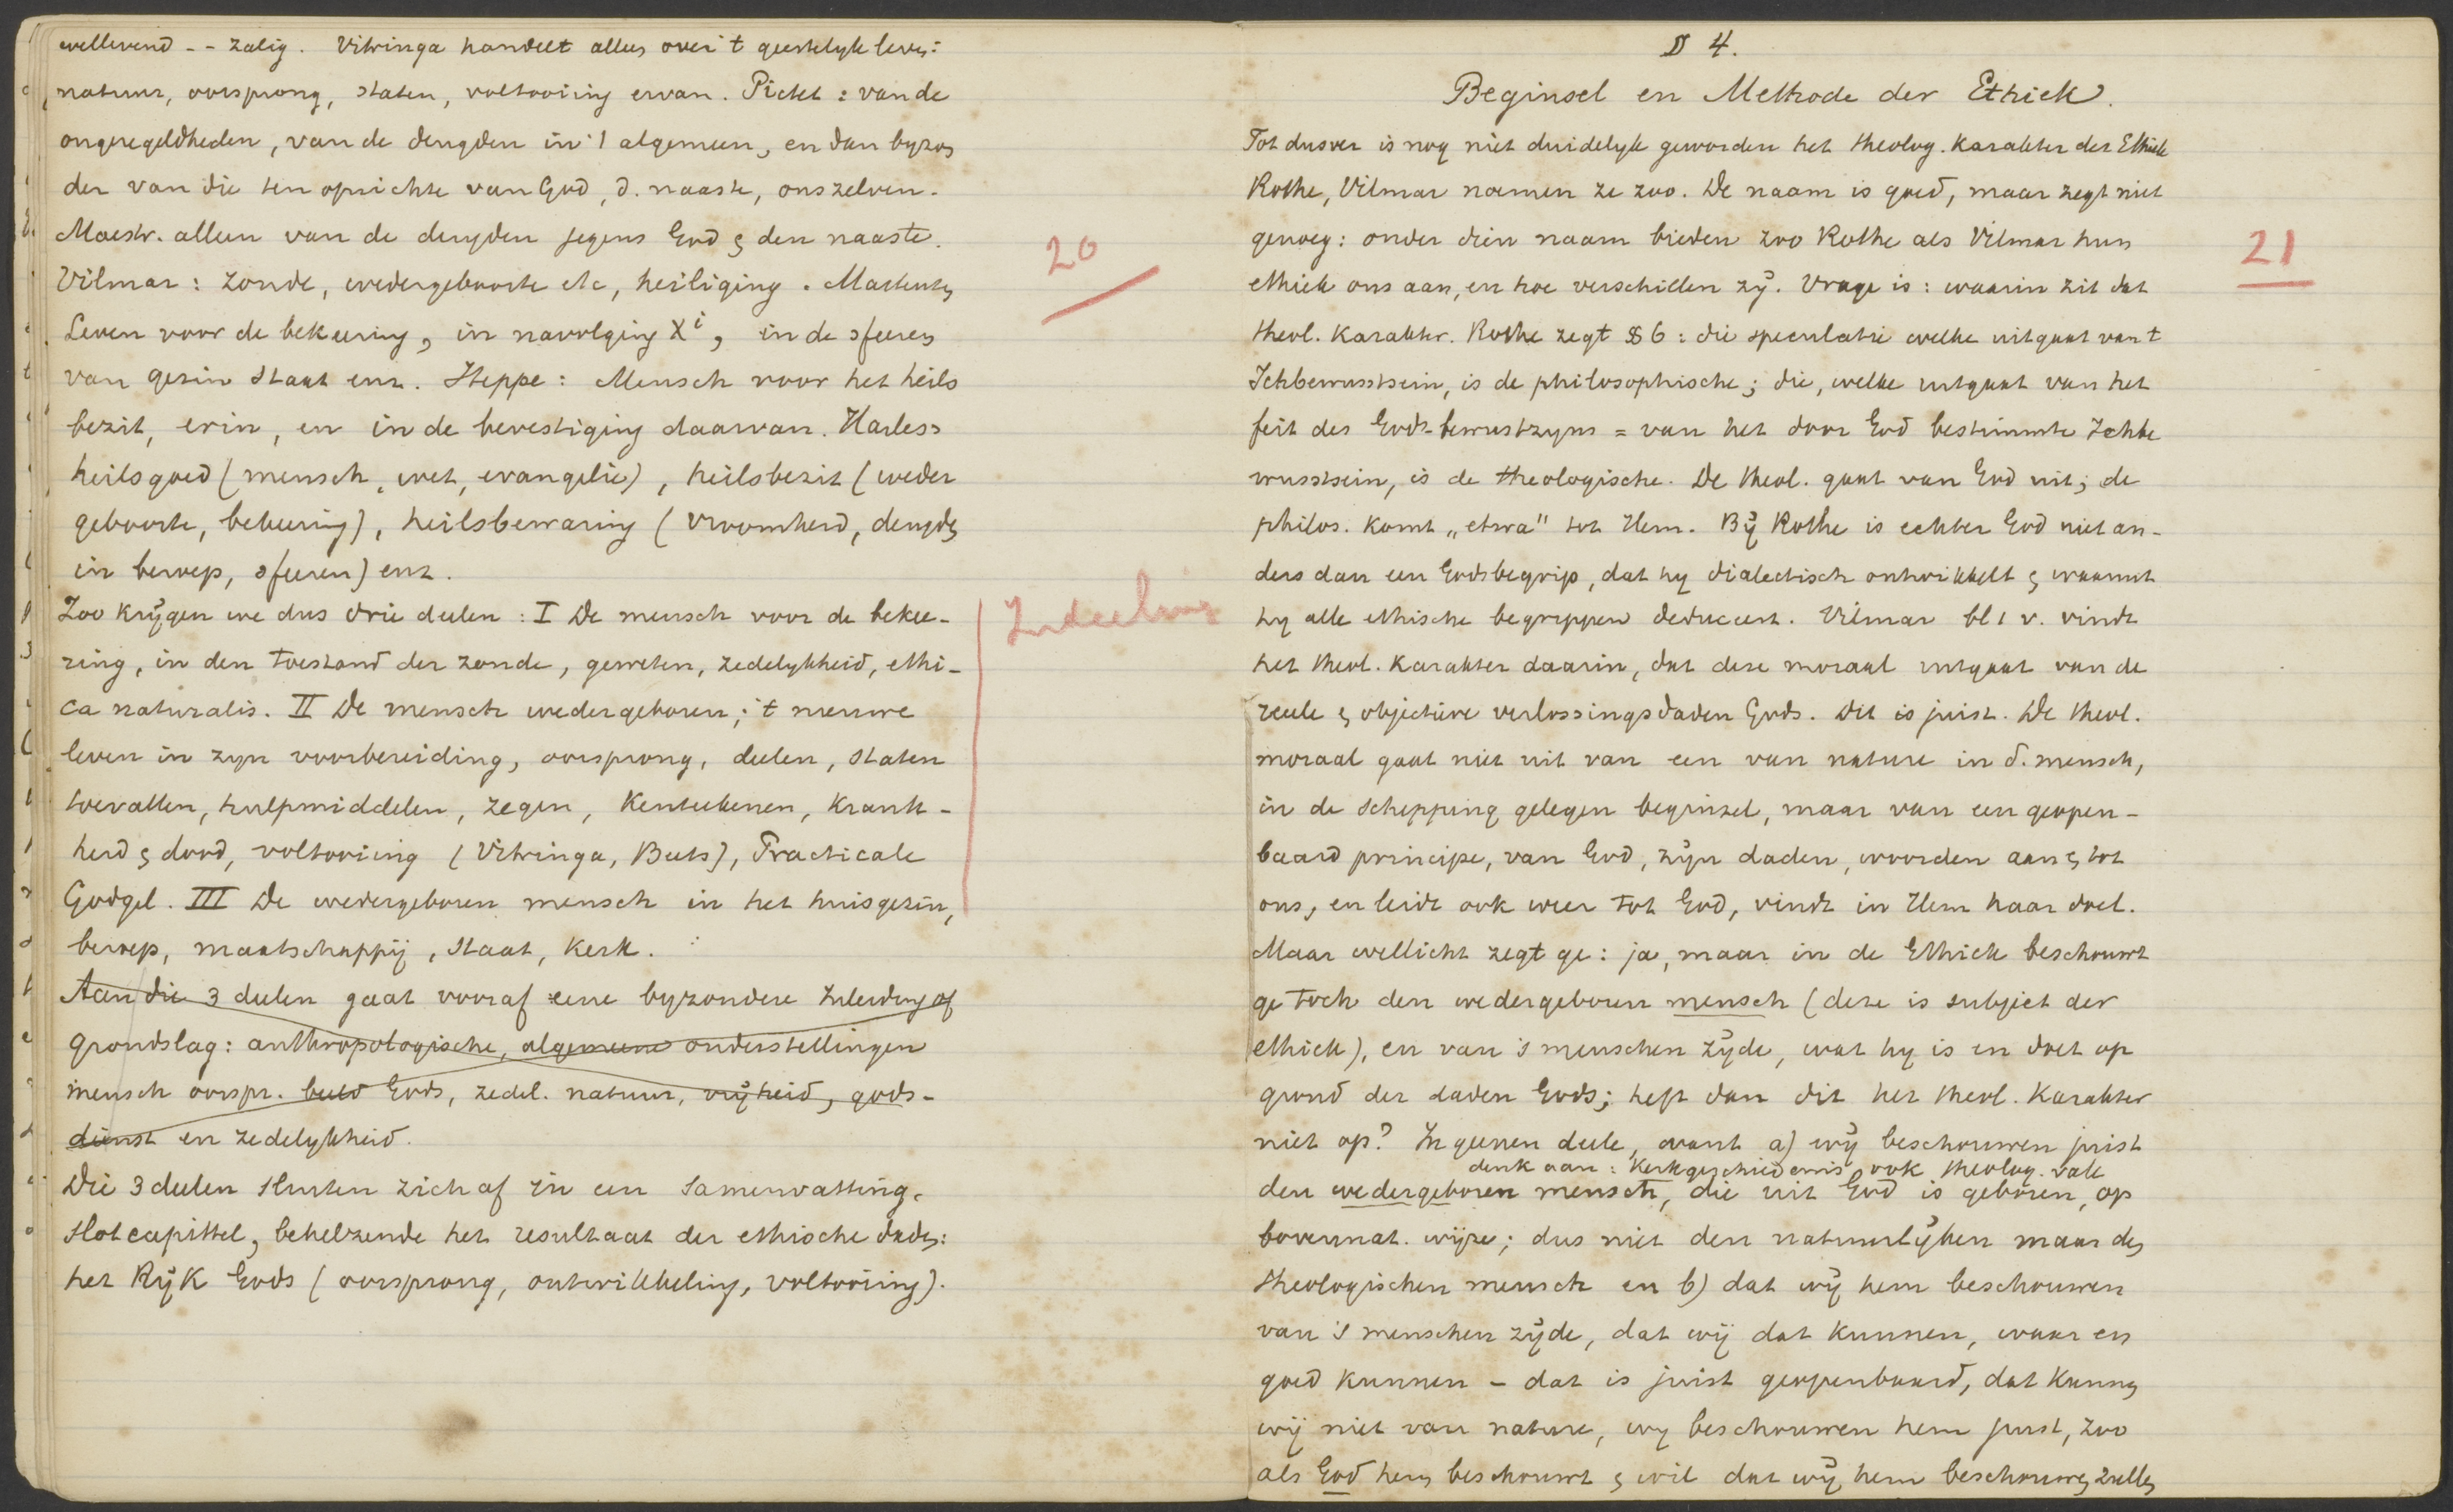 wellevend -- zalig. Vitringa handelt alles over 't geestelyk leven:
natuur, oorsprong, staten, voltooiing ervan. Pictet: van de
ongeregeldheden, van de deugden in 't algemeen, en dan byzon
der van die ten opzichte van God, d. naaste, ons zelven.
Maestr. alleen van de deugden jegens God & den naaste.
20
Vilmar: zonde, wedergeboorte etc, heiliging. Martensen
Leven voor de bekeering, in navolging Xi, in de sfeeren
van gezin staat enz. Heppe: Mensch voor het heils
bezit, erin, en in de bevestiging daarvan. Harless
heilsgoed (mensch, wet, evangelie), heilsbezit (weder
geboorte, bekeering), heilsbewaring (vroomheid, deugden
in beroep, sfeeren) enz.
Zoo krijgen we dus drie deelen: I De mensch voor de bekee-
Indeeling
ring, in den toestand der zonde, geweten, zedelykheid, ethi-
ca naturalis. II De mensch wedergeboren; 't nieuwe
leven in zyn voorbereiding, oorsprong, deelen, staten
toevallen, hulpmiddelen, zegen, kenteekenen, krank-
heid & dood, voltooiing (Vitringa, Buts), Practicale
Godgel. III De wedergeboren mensch in het huisgezin,
beroep, maatschappij, staat, kerk.
Aan die 3 deelen gaat vooraf eene byzondere Inleiding of
grondslag: anthropologische, algemeene onderstellingen
mensch oorspr. beeld Gods, zedel. natuur, vrijheid, gods-
dienst en zedelykheid.
Die 3 deelen sluiten zich af in een samenvatting,
slotcapittel, behelzende het resultaat der ethische daden:
het Rijk Gods (oorsprong, ontwikkeling, voltooiing).
§ 4.
Beginsel en Methode der Ethiek.
Tot dusver is nog niet duidelyk geworden het theolog. karakter der Ethiek
Rothe, Vilmar noemen ze zoo. De naam is goed, maar zegt niet
genoeg: onder dien naam bieden zoo Rothe als Vilmar hun
21
ethiek ons aan, en hoe verschillen zij. Vrage is: waarin zit dat
theol. karakter. Rothe zegt § 6: die speculatie welke uitgaat van 't
Ichbewusstsein, is de philosophische; die, welke uitgaat van het
feit des Gods-bewustzyns = van het door God bestimmte Ichbe
wusstsein, is de theologische. De theol. gaat van God uit; de
philos. komt „etwa" tot Hem. Bij Rothe is echter God niet an-
ders dan een Godsbegrip, dat hy dialectisch ontwikkelt & waaruit
hy alle ethische begrippen deduceert. Vilmar bl 1 v. vindt
het theol. karakter daarin, dat deze moraal uitgaat van de
reeele & objectieve verlossingsdaden Gods. Dit is juist. De theol.
moraal gaat niet uit van een van nature in d. mensch,
in de schepping gelegen beginsel, maar van een geopen-
baard principe, van God, zijn daden, woorden aan & tot
ons, en leidt ook weer tot God, vindt in Hem haar doel.
Maar wellicht zegt ge: ja, maar in de Ethiek beschouwt
ge toch den wedergeboren mensch (deze is subject der
ethiek), en van 's menschen zijde, wat hy is en doet op
grond der daden Gods; heft dan dit het theol. karakter
niet op? In geenen deele, want a) wij beschouwen juist
denk aan: Kerkgeschiedenis ook theolog. vak
den wedergeboren mensch, die uit God is geboren, op
bovennat. wijze; dus niet den natuurlijken maar den
theologischen mensch en b) dat wij hem beschouwen
van 's menschen zijde, dat wij dat kunnen, waar en
goed kunnen - dat is juist geopenbaard, dat kunnen
wij niet van nature, wy beschouwen hem juist, zoo
als God hem beschouwt & wil dat wij hem beschouwen zullen